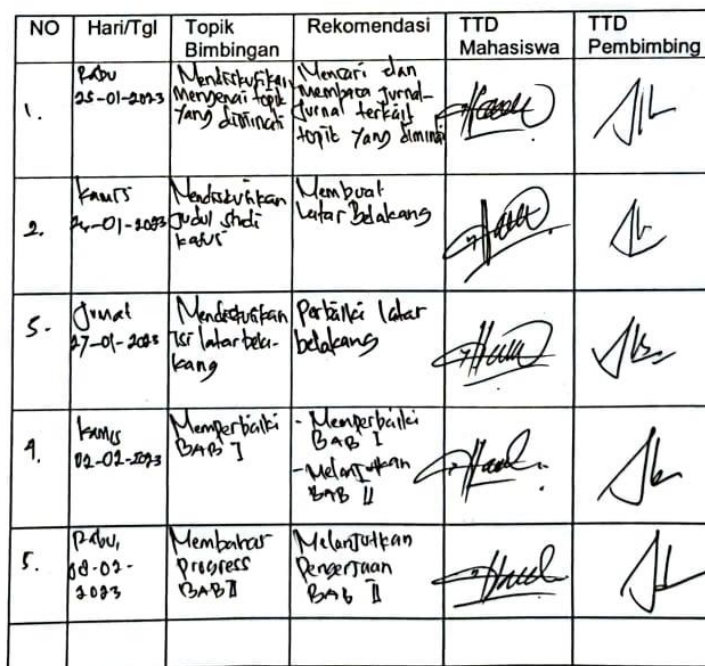 NO Hari/Tgl Topik Bimbingan Rekomendasi TTD Mahasiswa TTD Pembimbing
1.
Rabu
25-01-2023
Mendiskusikan
Mengenai topik
Yang diminati
Mencari dan
membaca jurnal-
Jurnal terkait
topik Yang diminati
2.
Kamis
26-01-2023
Mendiskusikan
Judul studi
kasus
Membuat
latar Belakang
Jumat
27-01-2023
Mendiskusikan
Isi latar bela-
kang
Perbaiki latar
belakang
4.
Kamis
02-02-2023
Memperbaiki
BAB I
- Memperbaiki
BAB I
- Melanjutkan
BAB II
5.
Rabu,
08-02-
2023
Membahas
Progress
BAB II
Melanjutkan
Pengerjaan
BAB II